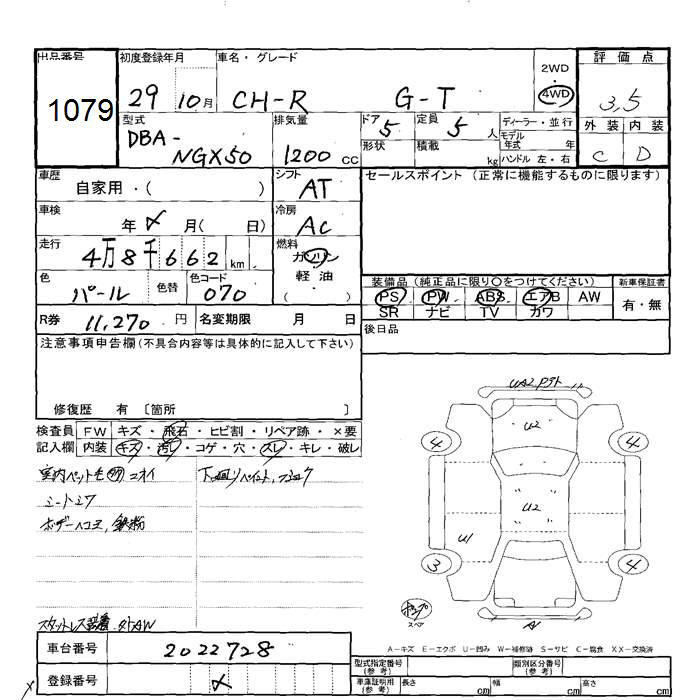 出品番号 1079
初度登録年月 29 10月
車名・グレード CH-R G-T
2WD ・ 4WD
評価点 3,5
外装 C 内装 D
型式 DBA- NGX50
排気量 1200 cc
ドア 5 定員 5 人
形状 積載 kg
ディーラー・並行
モデル年式 年
ハンドル 左・右
車歴 自家用・( )
シフト AT
セールスポイント (正常に機能するものに限ります)
車検 年 月( 日)
冷房 AC
走行 4万8千662 km
燃料 ガソリン 軽油 ( )
色 パール 色替 色コード 070
装備品 (純正品に限り○をつけてください)
新車保証書
PS PW ABS エアB AW
有・無
SR ナビ TV カワ
R券 11,270 円 名変期限 月 日
後日品
注意事項申告欄(不具合内容等は具体的に記入して下さい)
修復歴 有 〔箇所 〕
検査員 FW キズ・飛石・ヒビ割・リペア跡・×要
記入欄 内装 キズ・汚レ・コゲ・穴・スレ・キレ・破レ
室内ペット毛 ニオイ 下回りペイント,
シートシワ
ボデーヘコミ,鉄粉
U2
4 4
U2
U1
3 4
スペア
A
スタットレス装着.
A-キズ E-エクボ U-凹み W-補修跡 S-サビ C-腐食 XX-交換済
車台番号 2022728
登録番号
型式指定番号(参考) 類別区分番号(参考)
車庫証明用(参考) 長さ cm 幅 cm 高さ cm